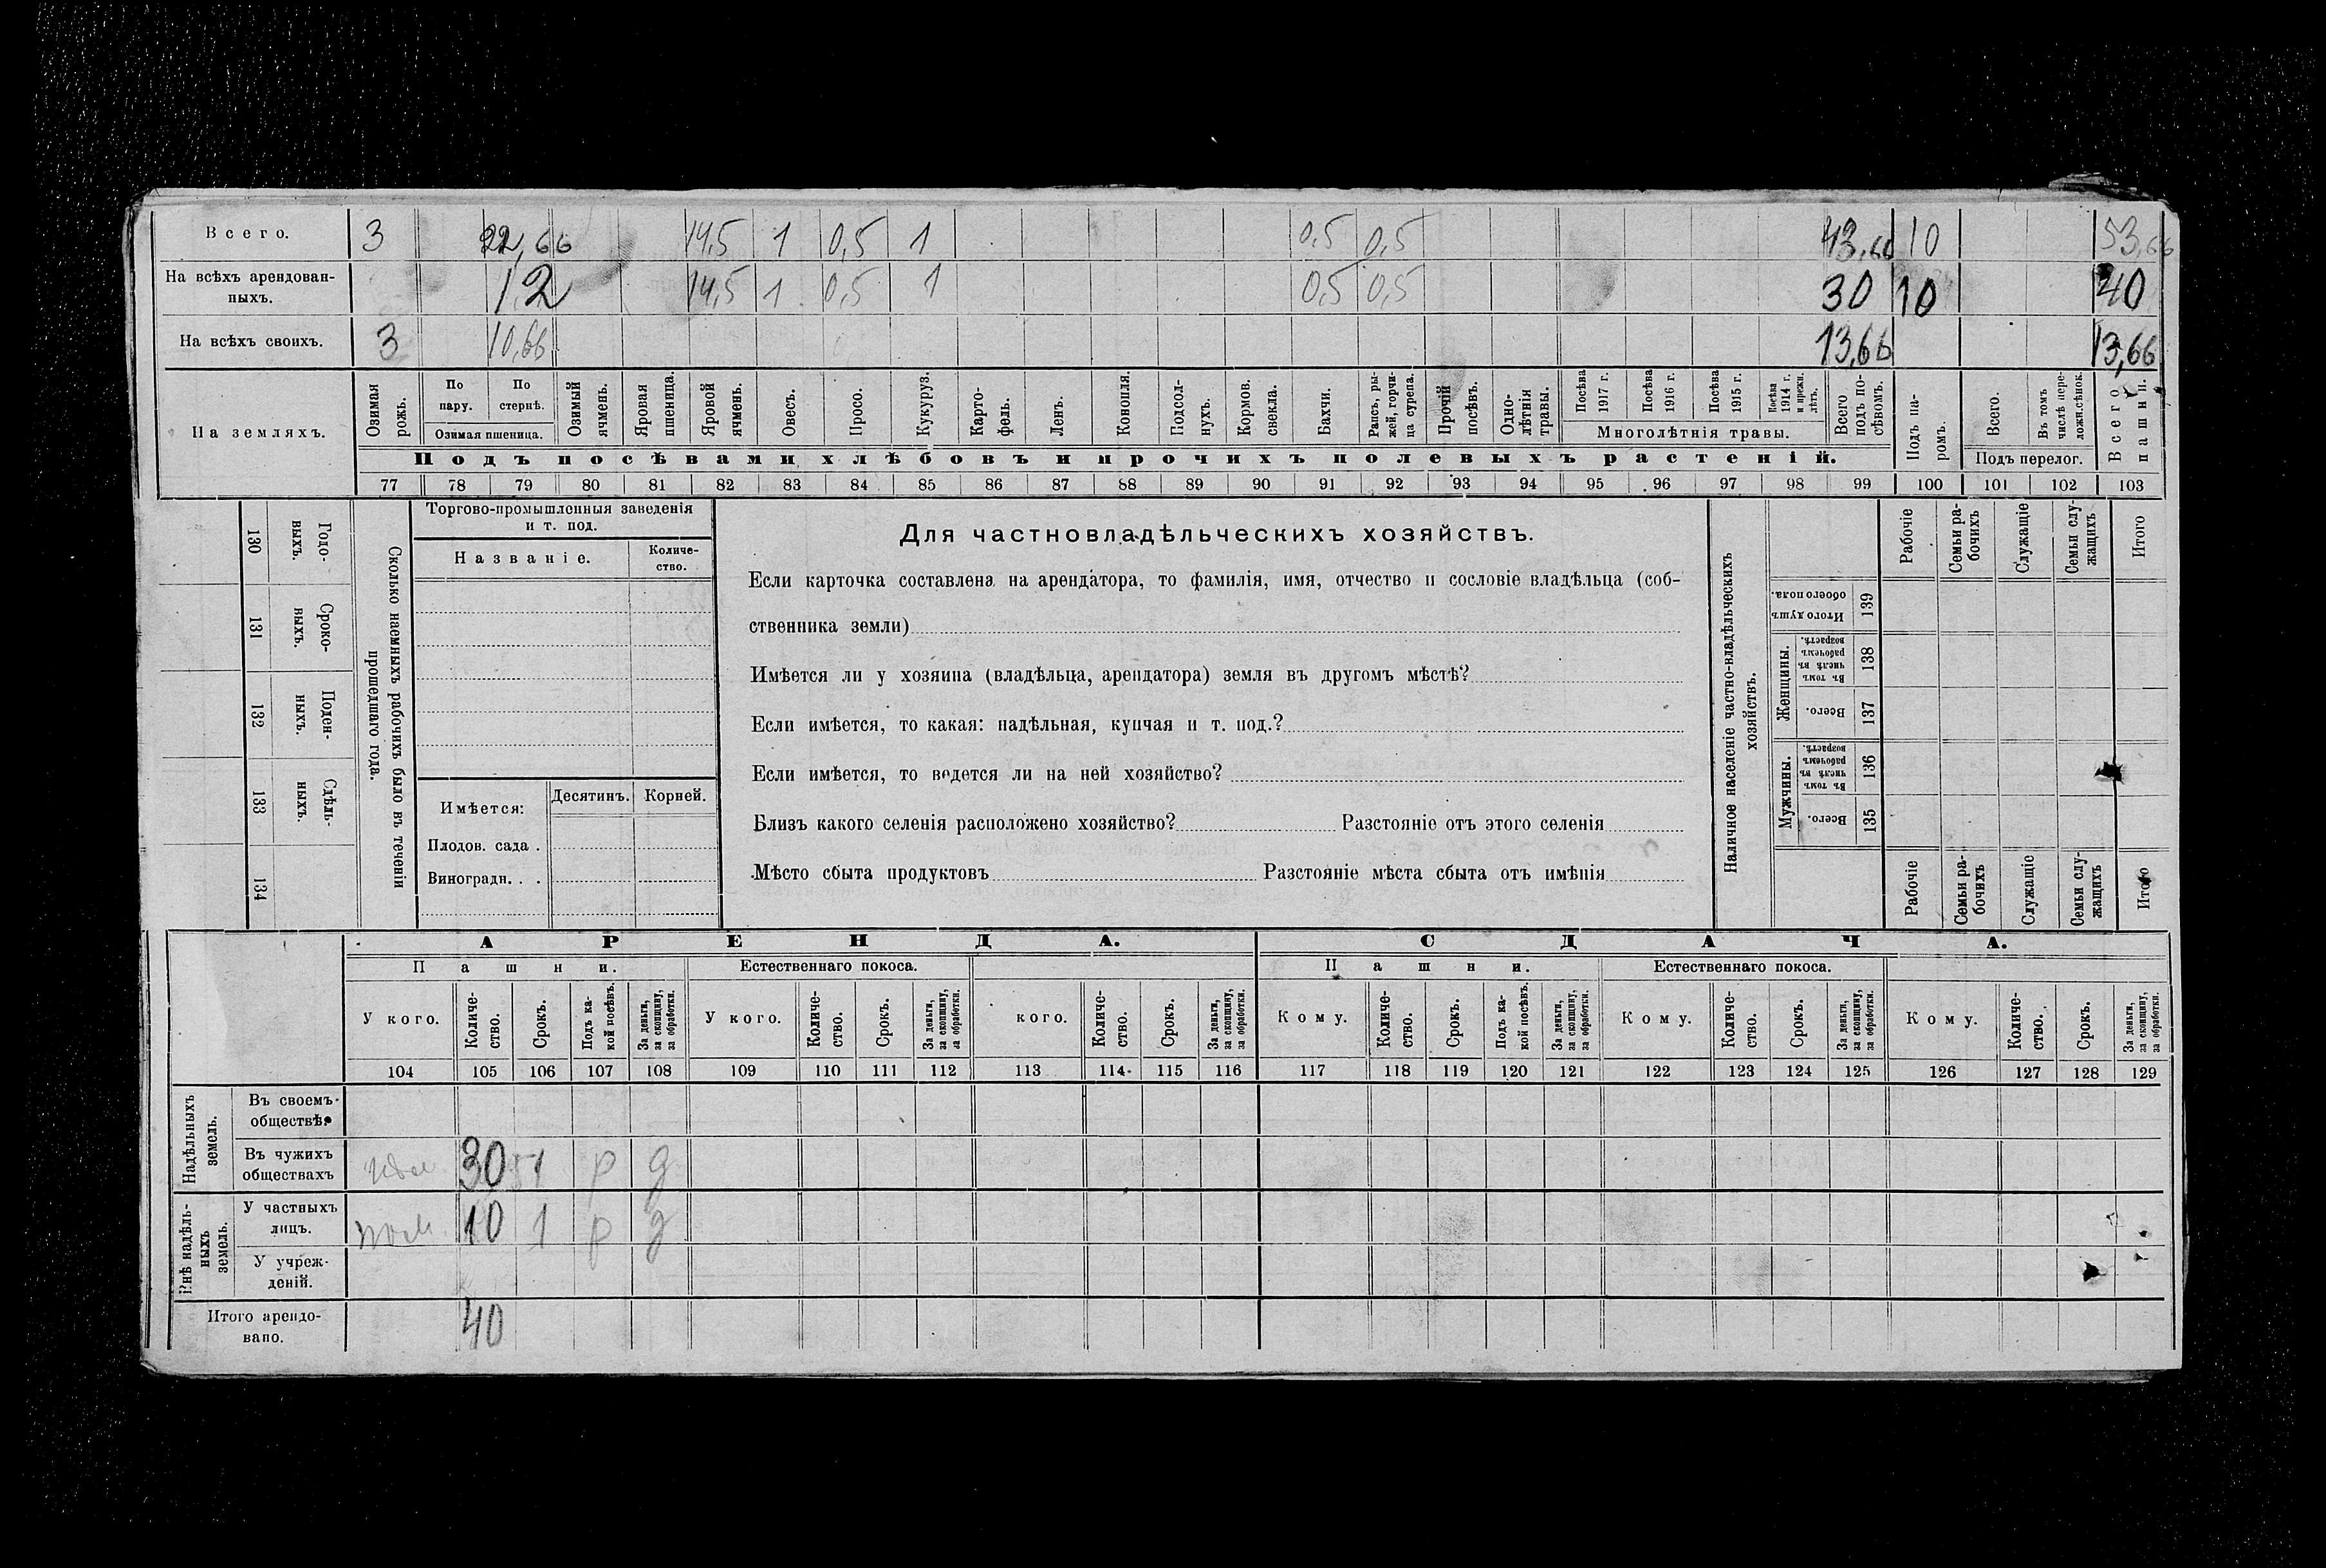 Всего. 3 22,66 14,5 1 0,5 1 0,5 0,5 43,66 10 53,66
На всѣхъ арендован-
ныхъ. 12 14,5 1 0,5 1 0,5 0,5 30 10 40
На всѣхъ своихъ. 3 10,66 13,66 13,66
На земляхъ.
Озимая рожь.
По пару.
По стернѣ.
Озимая пшеница.
Озимый ячмень.
Яровая пшеница.
Яровой ячмень.
Овесъ.
Просо.
Кукуруз.
Карто-
фель.
Ленъ.
Конопля.
Подсол-
нухъ.
Кормов. свекла.
Бахчи.
Рапсъ, ры-
жей, горчи-
ца сурепа.
Прочій посѣвъ.
Одно-
лѣтнія травы.
Посѣва 1917 г.
Посѣва 1916 г.
Посѣва 1915 г.
Посѣва 1914 г. и прежн. лѣтъ.
Многолѣтнія травы.
Всего подъ по-
сѣвомъ.
Подъ па-
ромъ.
Всего.
Въ томъ числѣ пере-
ложн.сѣнок.
Подъ перелог.
Всего пашни.
Подъ посѣвами хлѣбовъ и прочихъ полевыхъ растеній.
77 78 79 80 81 82 83 84 85 86 87 88 89 90 91 92 93 94 95 96 97 98 99 100 101 102 103
130 Годо-
выхъ.
131 Сроко-
выхъ.
132 Поден-
ныхъ.
133 Сдѣль-
ныхъ.
134
Сколько наемныхъ рабочихъ было въ теченіи
прошедшаго года.
Торгово-промышленныя заведенія
и т. под.
Названіе.
Количе-
ство.
Имѣется: Десятинъ. Корней.
Плодов. сада .
Виноградн. . .
Для частновладѣльческихъ хозяйствъ.
Если карточка составлена на арендатора, то фамилія, имя, отчество и сословіе владѣльца (соб-
ственника земли)
Имѣется ли у хозяина (владѣльца, арендатора) земля въ другомъ мѣстѣ?
Если имѣется, то какая: надѣльная, купчая и т. под.?
Если имѣется, то ведется ли на ней хозяйство?
Близъ какого селенія расположено хозяйство? Разстояніе отъ этого селенія
Мѣсто сбыта продуктовъ Разстояніе мѣста сбыта отъ имѣнія
Наличное населеніе частно-владѣльческихъ
хозяйствъ.
Рабочіе
Семьи ра-
бочихъ
Служащіе
Семьи слу-
жащихъ
Итого
Итого душъ обоего пола. 139
Женщины.
Въ томъ числѣ въ рабочемъ возрастѣ. 138
Всего. 137
Мужчины.
Въ томъ числѣ въ рабочемъ возрастѣ. 136
Всего. 135
Рабочіе
Семьи ра-
бочихъ
Служащіе
Семьи слу-
жащихъ
Итого
АРЕНДА. СДАЧА.
Пашни. Естественнаго покоса. Пашни. Естественнаго покоса.
У кого.
Количе-
ство.
Срокъ.
Подъ ка-
кой посѣвъ.
За деньги,
за скопщину,
за обработки.
У кого.
Количе-
ство.
Срокъ.
За деньги,
за скопщину,
за обработки.
кого.
Количе-
ство.
Срокъ.
За деньги,
за скопщину,
за обработки.
Кому.
Количе-
ство.
Срокъ.
Подъ ка-
кой посѣвъ.
За деньги,
за скопщину,
за обработки.
Кому.
Количе-
ство.
Срокъ.
За деньги,
за скопщину,
за обработки.
Кому.
Количе-
ство.
Срокъ.
За деньги,
за скопщину,
за обработки.
104 105 106 107 108 109 110 111 112 113 114 115 116 117 118 119 120 121 122 123 124 125 126 127 128 129
Надѣльныхъ
земель.
Въ своемъ
обществѣ.
Въ чужихъ
обществахъ 30 1 р д
Внѣ надѣль-
ныхъ
земель.
У частныхъ
лицъ. 10 1 р д
У учреж-
деній.
Итого арендо-
вано. 40